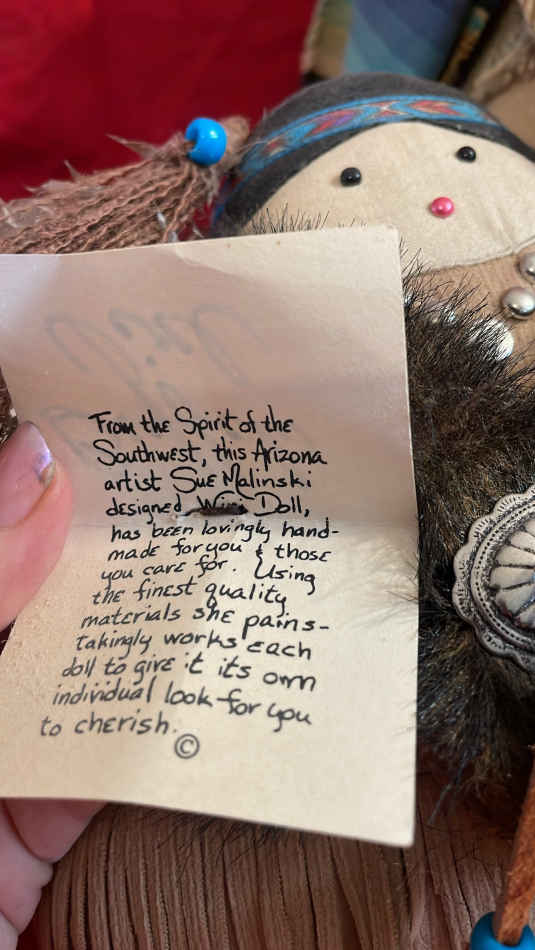 From the Spirit of the
Southwest, this Arizona
artist Sue Malinski
designed Doll,
has been lovingly hand-
made for you & those
you care for. Using
the finest quality
materials she pains-
takingly works each
doll to give it its own
individual look for you
to cherish.
©